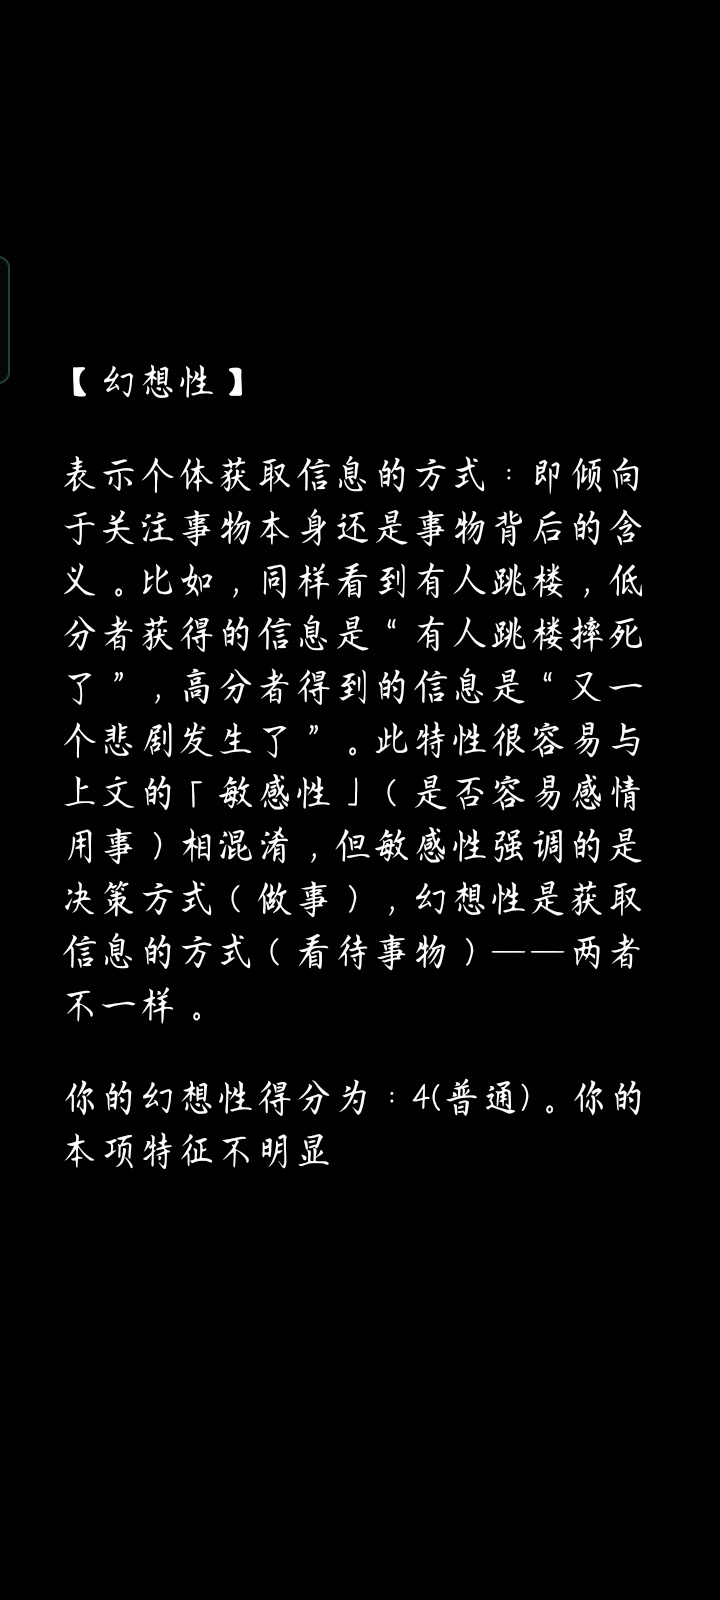 【幻想性】
表示个体获取信息的方式：即倾向
于关注事物本身还是事物背后的含
义。比如，同样看到有人跳楼，低
分者获得的信息是“有人跳楼摔死
了”，高分者得到的信息是“又一
个悲剧发生了”。此特性很容易与
上文的「敏感性」（是否容易感情
用事）相混淆，但敏感性强调的是
决策方式（做事），幻想性是获取
信息的方式（看待事物）——两者
不一样。
你的幻想性得分为：4(普通)。你的
本项特征不明显